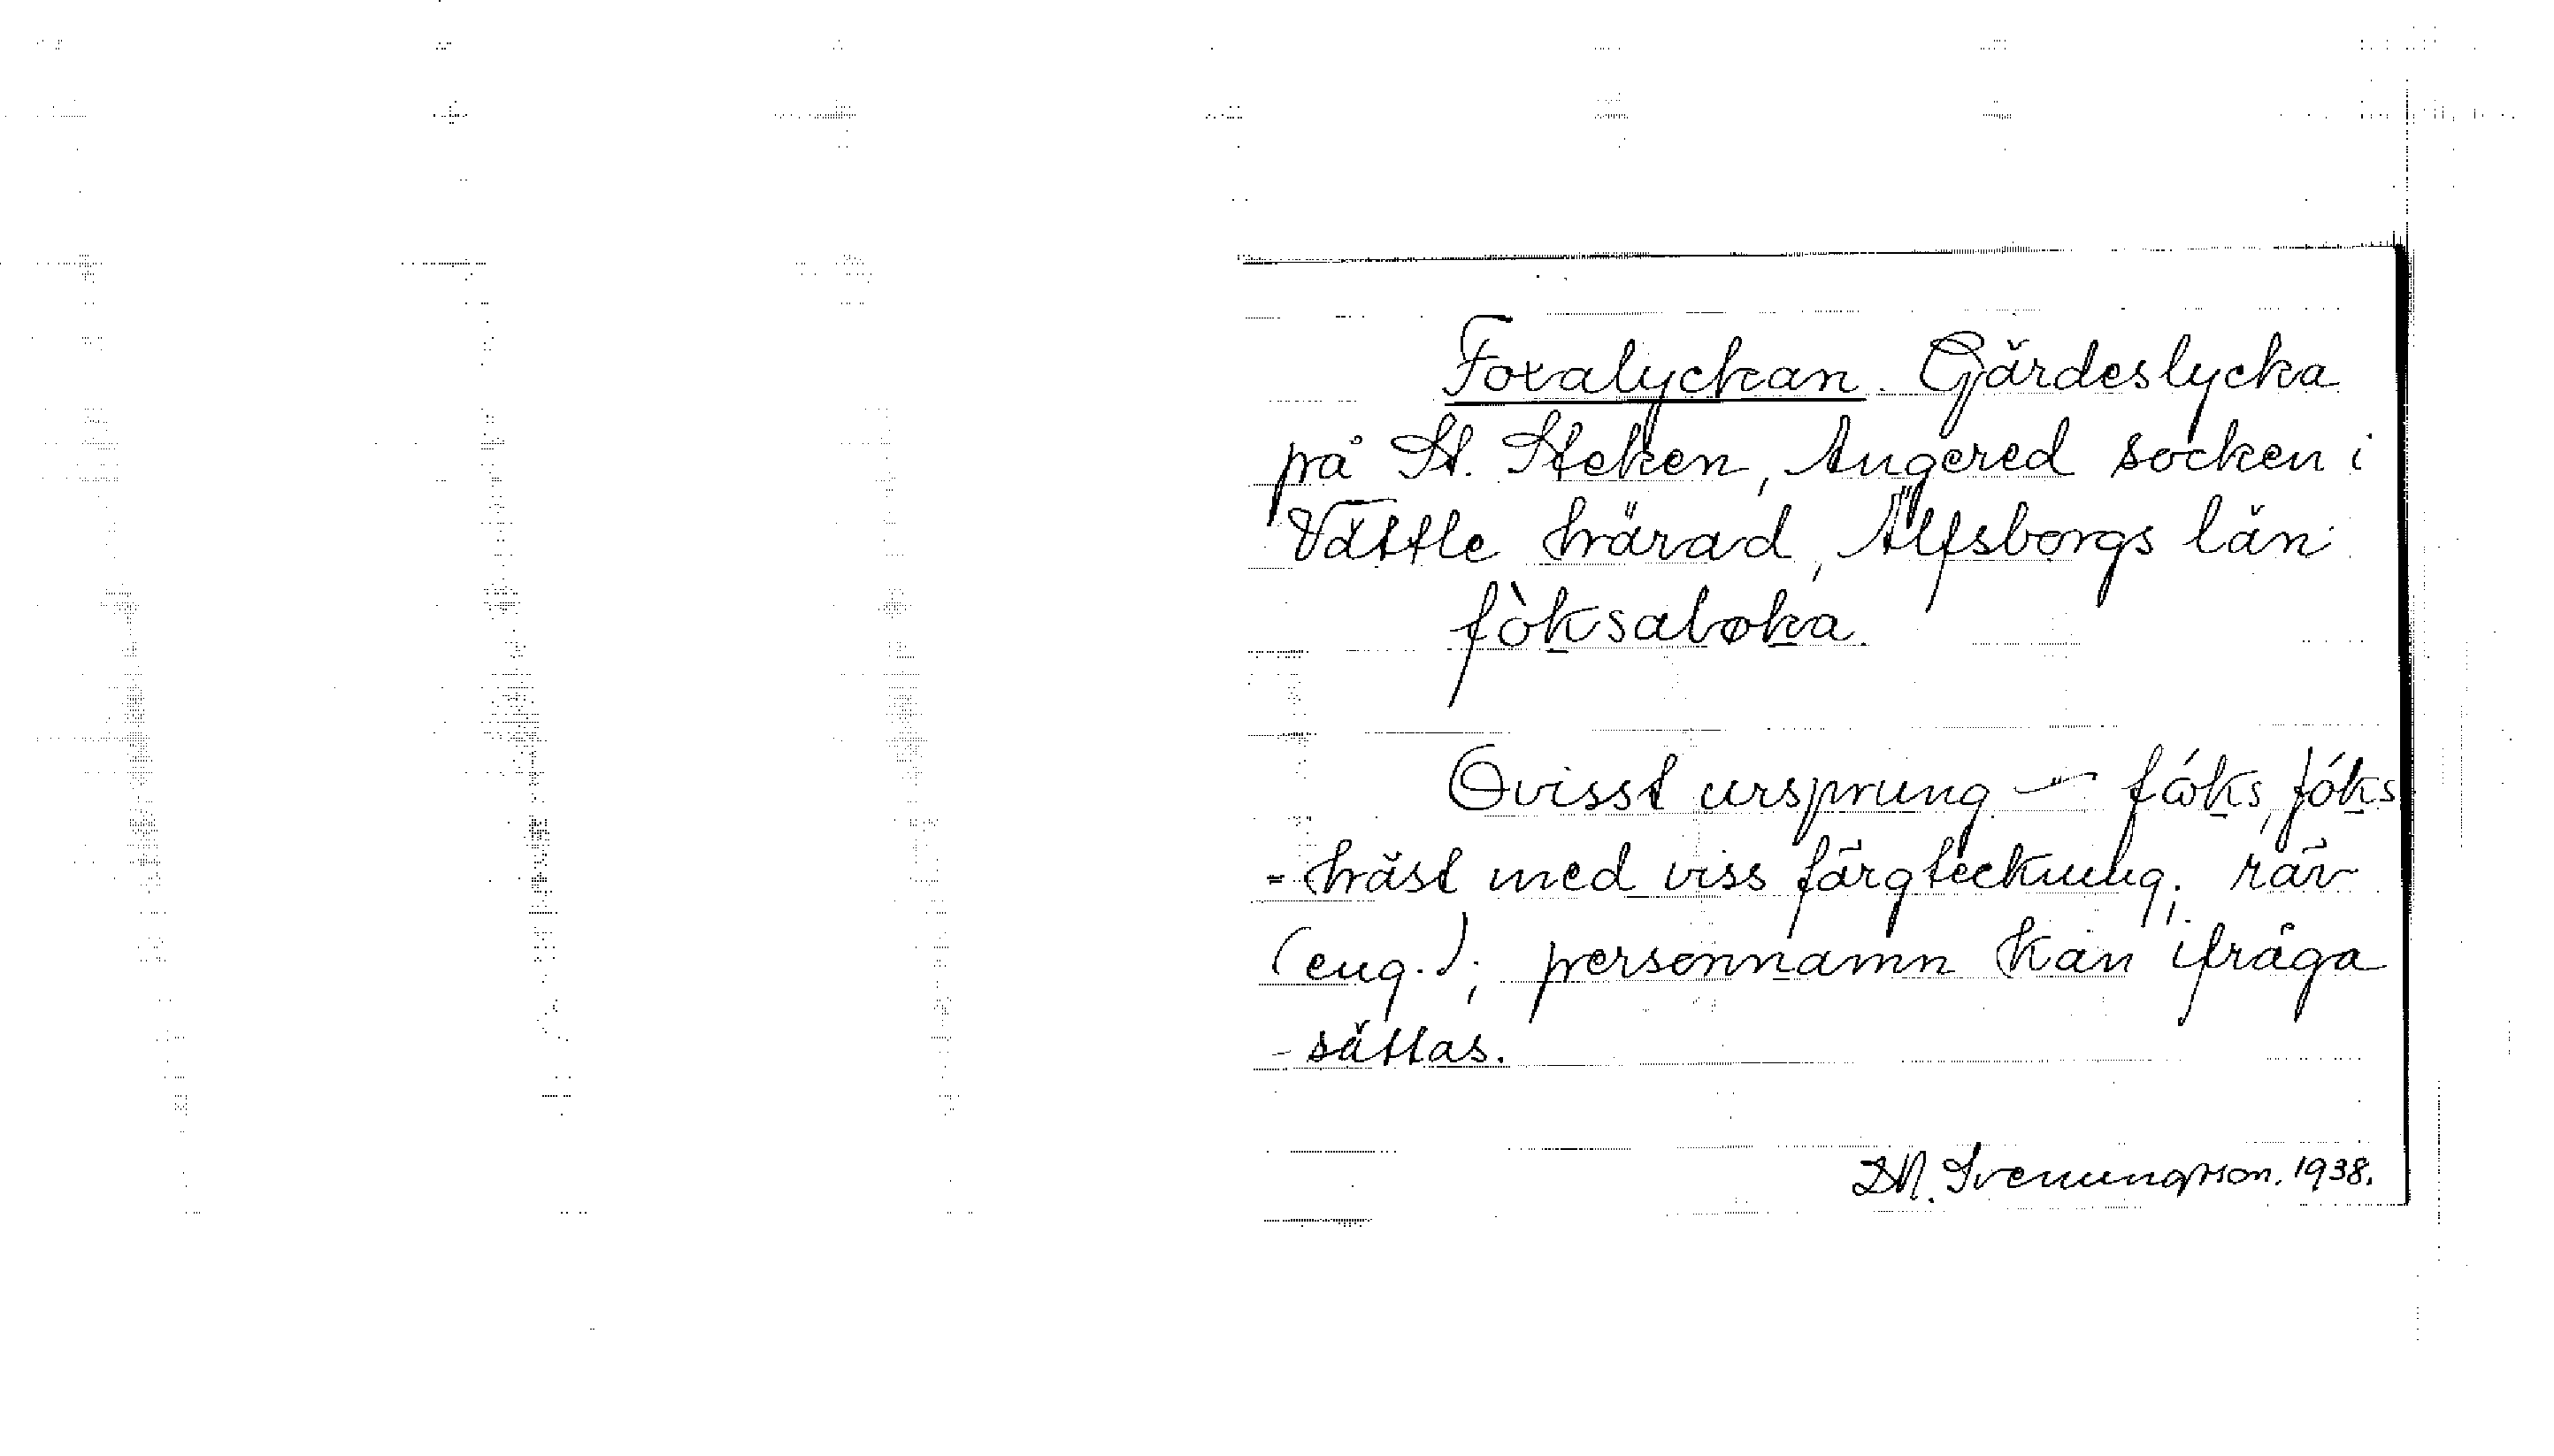 Foxalyckan. Gärdeslycka
på St. Steken, Angered socken i
Vättle härad, Älfsborgs län
fòksaløka.
Ovisst ursprung – fóks, fóks
- häst med viss färgteckning; räv
(eng.); personnamn kan ifråga
- sättas.
D.N. Svenungsson. 1938.